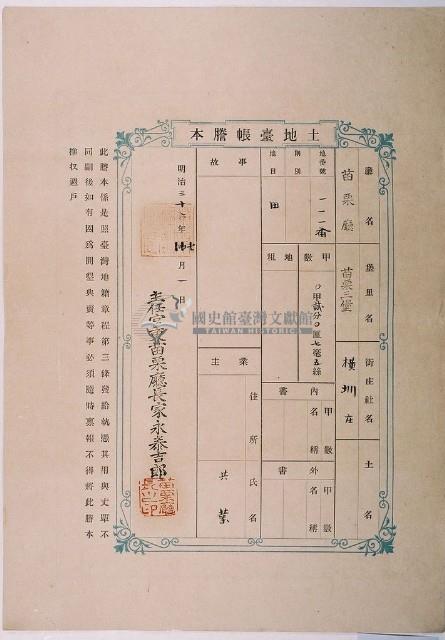 土地臺帳謄本
廳名
苗栗廳
堡里名
苗栗三堡
街庄社名
横圳庄
土名
地番號
一一一番
則別
地目
田
甲數
〇甲貳分〇厘七毫五絲
地租
內書
甲數
名稱
外書
甲數
名稱
事故
業主
住所
氏名
共業
明治三十
年
月
日
苗栗廳長家永泰吉郎
苗栗廳長之印
此謄本係是照臺灣地籍章程第三條發給執憑其用與丈單不
同嗣後如有因爲開墾典賣等事必須隨時稟報不得將此謄本
擦收過戶
國史館臺灣文獻館
TAIWAN HISTORICA